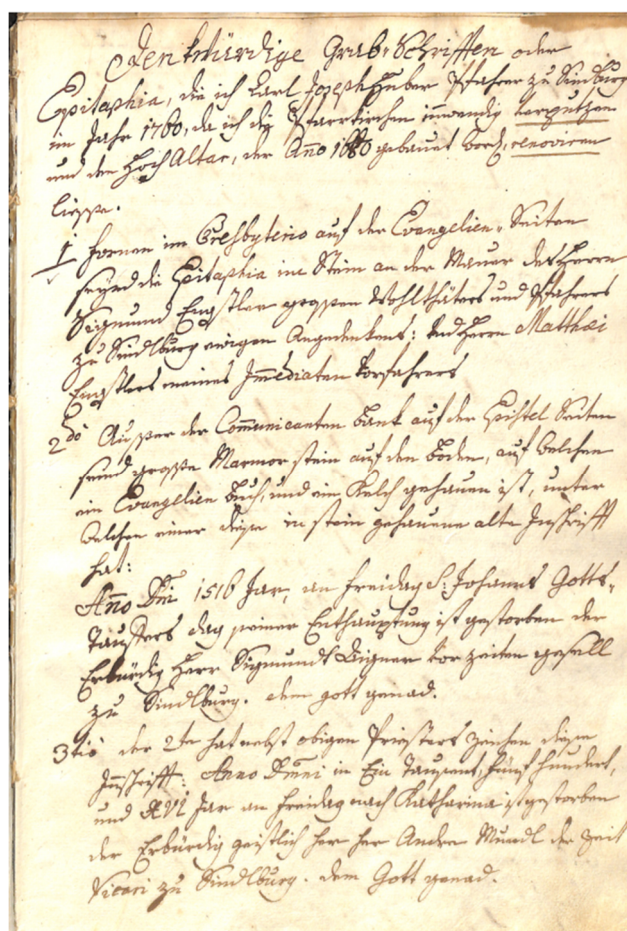 Denkwürdige Grab-Schrifften oder
Epitaphia, die ich Carl Joseph Huber Pfahrer zu Sindlburg
im Jahr 1760, da ich die Pfarrkirchen innwendig verputzen
und den Hoch Altar, der Anno 1680 gebauet word, renoviren
liesse.
1 fornen im Presbyterio auf der Evangelien-Seiten
seynd die Epitaphia im Stein an der Mauer des Herrn
Sigmund Engstler grossen Wohlthäters und Pfahrers
zu Sindlburg ewigen Angedenkens: und Herrn Matthæi
Engstlers meines Immediaten Vorfahrers
2do Ausser der Communicanten Bank auf der Epistel Seiten
seind grosse Marmor stein auf den Boden, auf welchen
ein Evangelien Buch, und ein Kelch gehauen ist, unter
welchen einer diese in stein gehauene alte Inschrifft
hat:
Anno Dni 1516 Jar, an freidag S: Johanns Gotts-
Tauffers dag seiner Enthauptung ist gestorben der
Erbürdig Herr Sigmundt Aigner vor zeiten gesell
zu Sindlburg. dem gott genad.
3tio der 2te hat nebst obigen Priesters zeichen diese
Innschrifft: Anno Domni in Ein Tausent, funf hundert,
und XVI Jar an freidag nach Katharina ist gestorben
der Erbürdig geistlich her her Andre Mundl der zeit
Vicari zu Sindlburg. dem Gott genad.